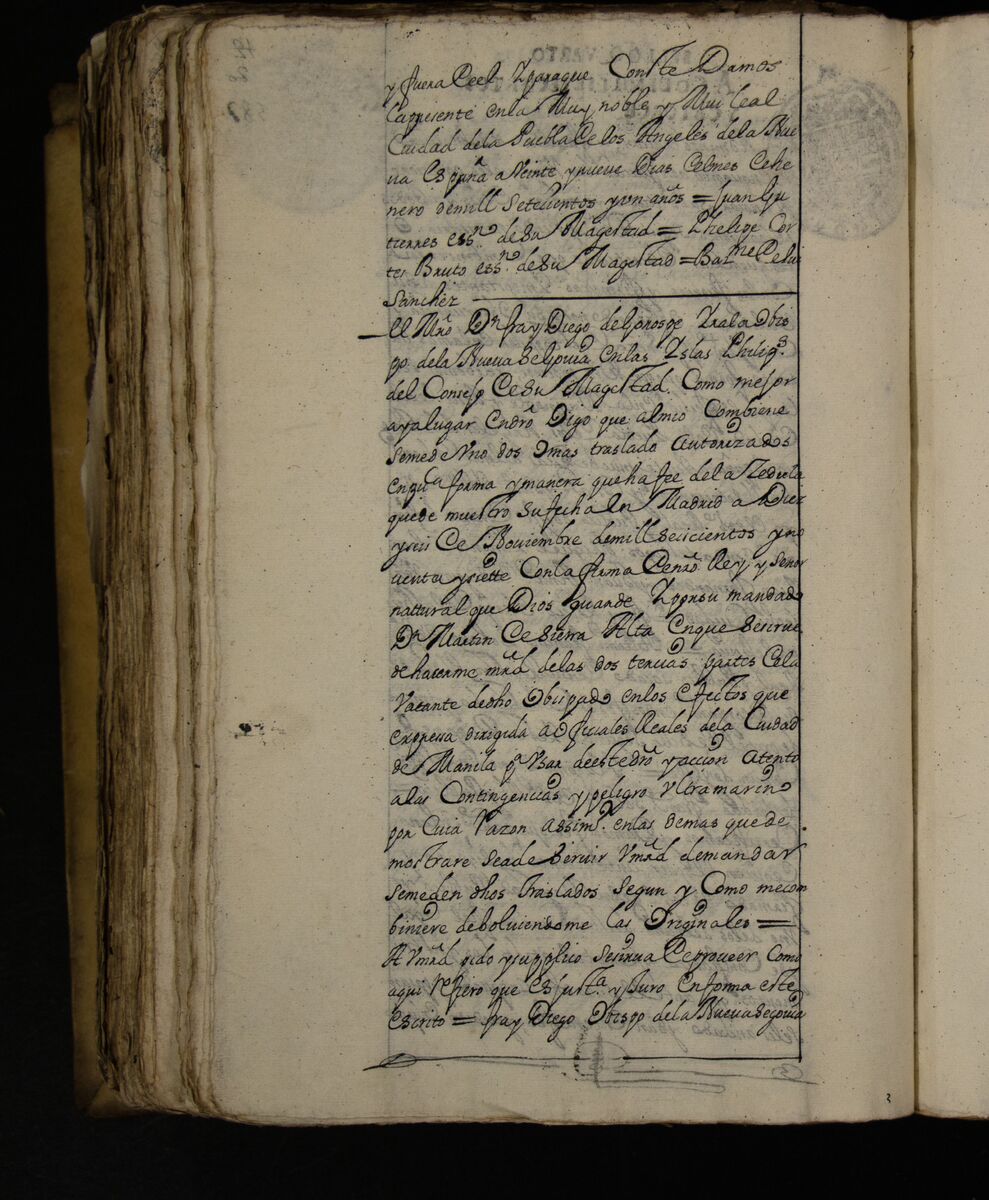 y fuera de el Y para que Conste Damos
la presente en la Muy noble y Mui leal
Ciudad de la Puebla de los Angeles de la Nue
ua España a Veinte y nueve Dias del mes de he
nero de mill Setecientos y un años = Juan Gu
tierres essno. de Su Magestad = Phelipe Cor
tes Bruto essno. de Su Magestad = Balme de
Sanchez
El Mro Dn fray Diego
po de la Nueva Segovia en las Yslas Philips
del Consejo de Su Magestad. Como mejor
aya lugar en dro Digo que al mio Combiene
se me de Uno dos o mas traslado autorizados
en forma y manera que haga fee de la Zedula
que de muestro su fecha en Madrid a Diez
y seis de Noviembre de mill Seiscientos y no
uenta y siette Con la firma de nro Rey y Señor
nattural que Dios guarde Y por su mandado
Dn Martin de Sierra Alta en que Se sirue
de haserme mrd de las dos tercias partes de la
Vacante de dho Obispado en los efectos que
expresa dirigida a Oficiales Reales de la Ciudad
de Manila pa Usar de este dro y accion atento
a las Contingencias y peligro Ultramarino
por Cuia razon assimo. en las demas que de
mostrare Se a de Servir Vmrd de mandar
se me den dhos traslados Segun y Como me com
biniere deboluiendome las Originales =
A Vmrd pido y supplico Se sirva de proveer Como
aqui refiero que es Justa. y Juro en forma este
escrito = fray Diego Obispo de la Nueva Segovia